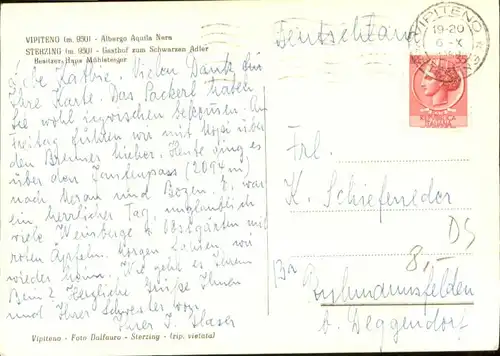 VIPITENO (m. 950) - Albergo Aquila Nera
STERZING (m. 950) - Gasthof zum Schwarzen Adler
Besitzer: Hans Mühlsteiger
Vielen Dank für
Ihre Karte. Das Packerl haben
Sie wohl inzwischen bekommen. Am
Freitag fuhren wir mit über
den Brenner hieher. Heute ging es
über den Jaufenpass (2094 m)
nach Meran und Bozen. Es war
ein herrlicher Tag, unglaublich
viele Weinberge u. Obstgärten mit
roten Äpfeln. Morgen fahren wir
wieder heim. Wie geht es Ihrem
Herzliche Grüße Ihnen
und Ihrer Schwester von
Ihrer J. Glaser
Vipiteno - Foto Dalfauro - Sterzing - (rip. vietata)
Deutschland
VIPITENO
19-20
6-X
Frl.
K. Schiefeneder
DS
8,-
Ruhmannsfelden
b. Deggendorf